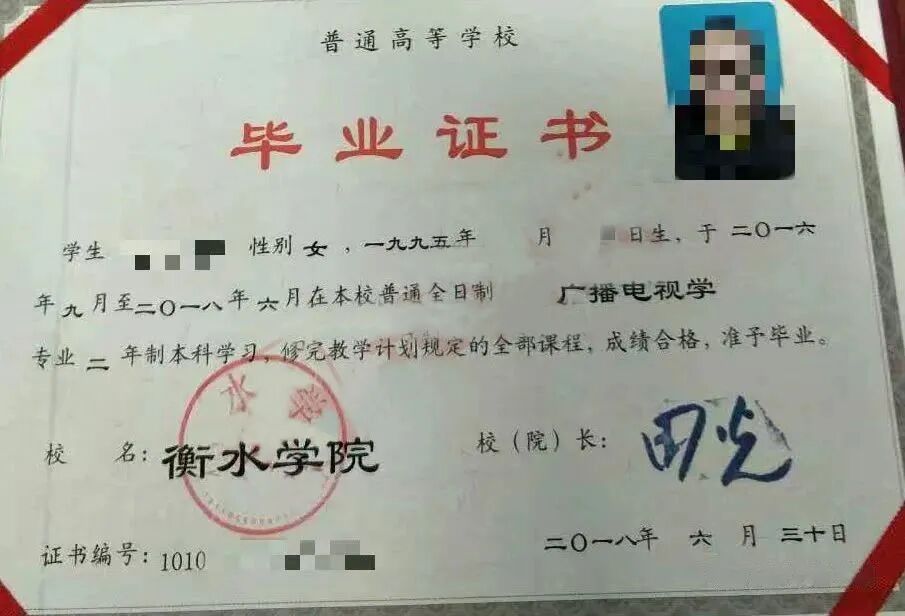 普通高等学校
毕业证书
学生 性别 女 ，一九九五年 月 日生，于 二〇一六
年 九 月至二〇一八年 六 月在本校普通全日制 广播电视学
专业 二 年制本科学习，修完教学计划规定的全部课程，成绩合格，准予毕业。
校 名：衡水学院 校（院）长：田光
证书编号：1010
二〇一八年 六 月 三十日